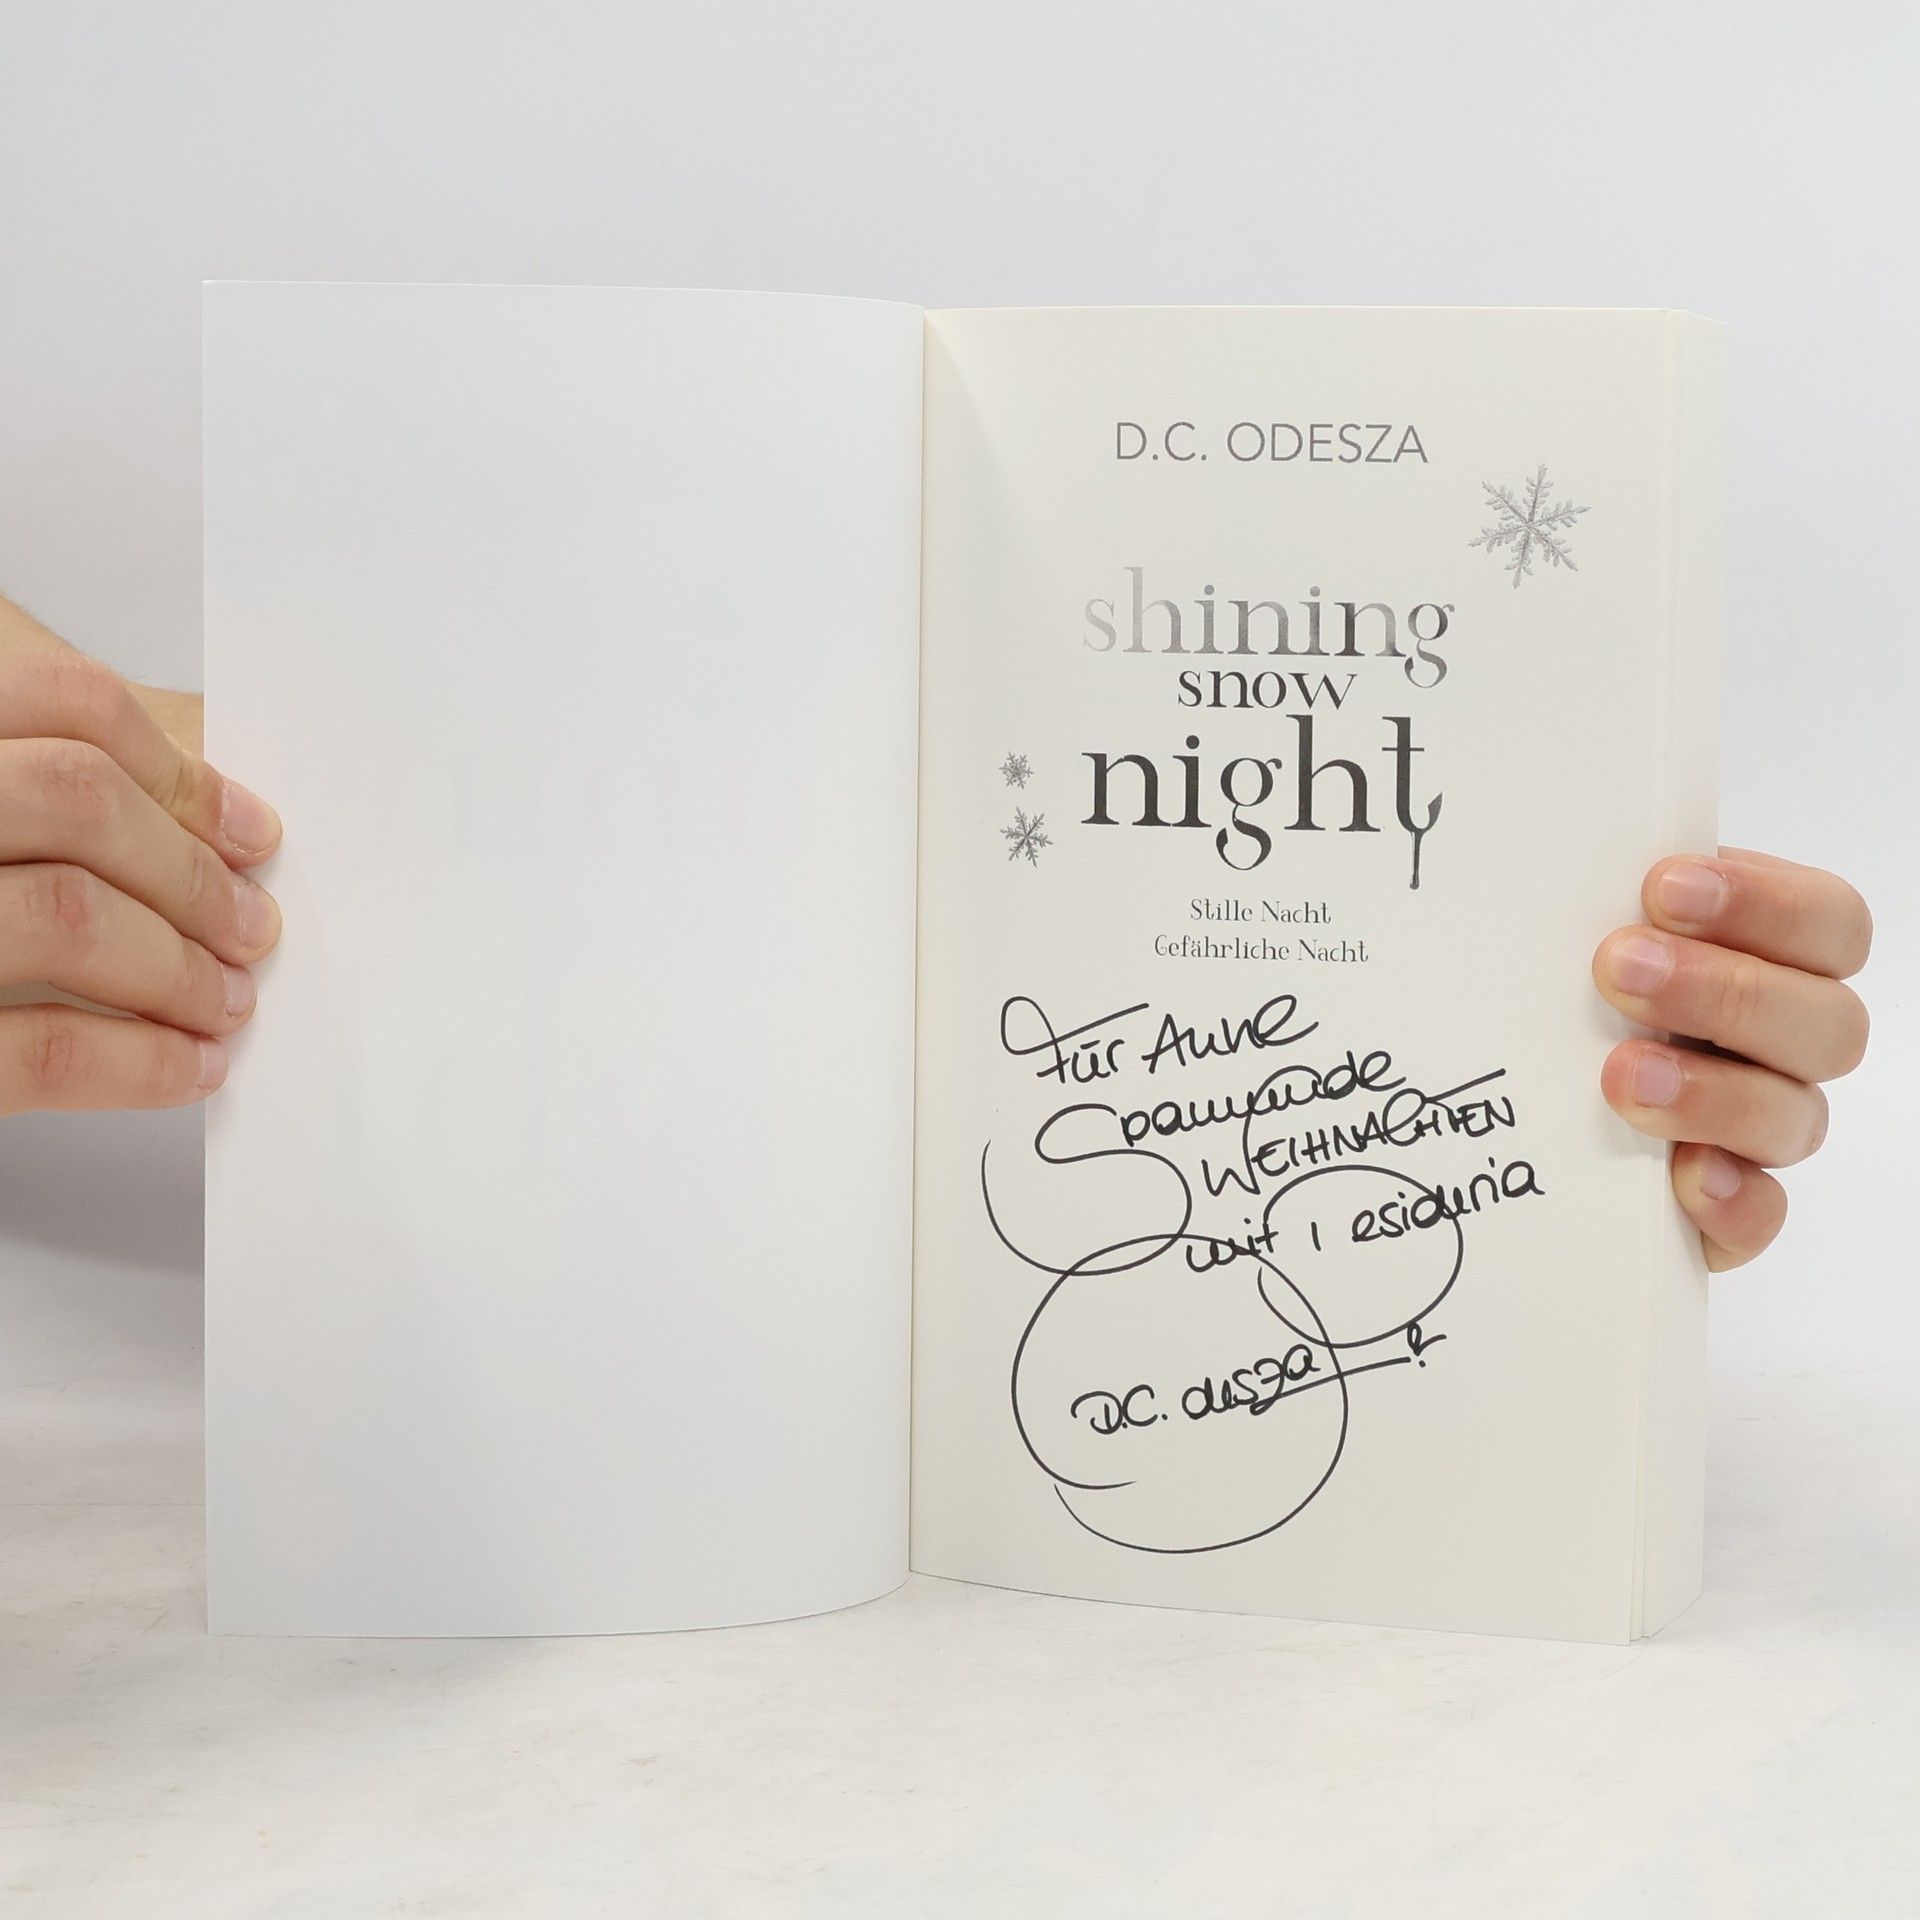 D.C. ODESZA
shining
snow
night
Stille Nacht
Gefährliche Nacht
Für Anne
Spannende
WEIHNACHTEN
mit
D.C. Odesza